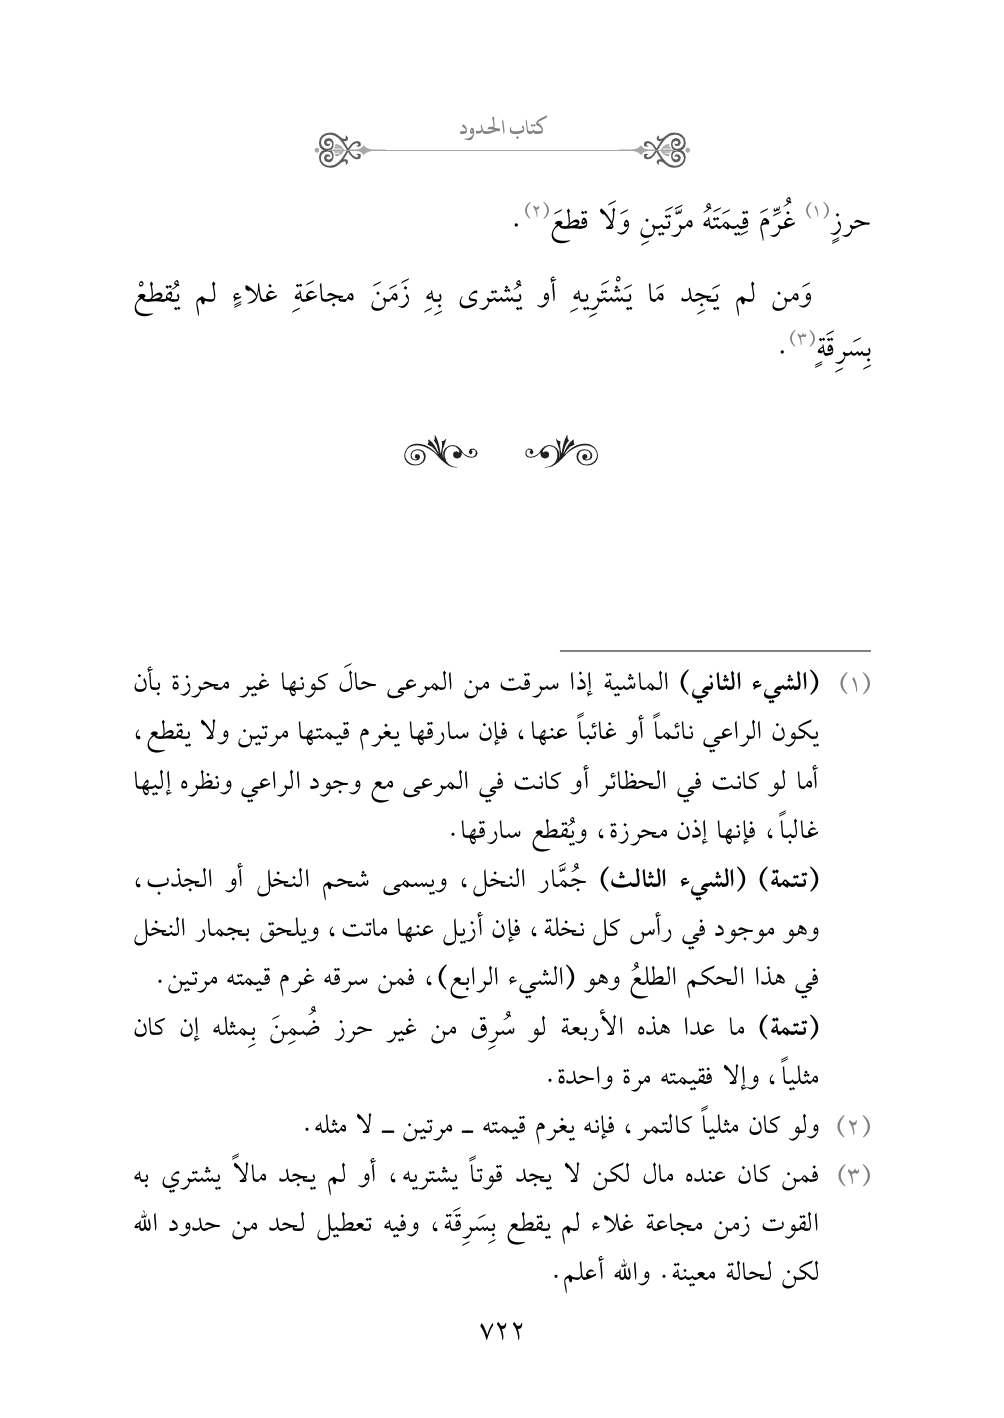 كتاب الحدود
حرزٍ(١) غُرِّمَ قِيمَتَهُ مرَّتَينِ وَلَا قطعَ(٢).
وَمن لم يَجِد مَا يَشْتَرِيهِ أو يُشترى بِهِ زَمَنَ مجاعَةِ غلاءٍ لم يُقطعْ
بِسَرِقَةٍ(٣).
(١) (الشيء الثاني) الماشية إذا سرقت من المرعى حالَ كونها غير محرزة بأن
يكون الراعي نائماً أو غائباً عنها، فإن سارقها يغرم قيمتها مرتين ولا يقطع،
أما لو كانت في الحظائر أو كانت في المرعى مع وجود الراعي ونظره إليها
غالباً، فإنها إذن محرزة، ويُقطع سارقها.
(تتمة) (الشيء الثالث) جُمَّار النخل، ويسمى شحم النخل أو الجذب،
وهو موجود في رأس كل نخلة، فإن أزيل عنها ماتت، ويلحق بجمار النخل
في هذا الحكم الطلعُ وهو (الشيء الرابع)، فمن سرقه غرم قيمته مرتين.
(تتمة) ما عدا هذه الأربعة لو سُرِق من غير حرز ضُمِنَ بِمثله إن كان
مثلياً، وإلا فقيمته مرة واحدة.
(٢) ولو كان مثلياً كالتمر، فإنه يغرم قيمته ـ مرتين ـ لا مثله.
(٣) فمن كان عنده مال لكن لا يجد قوتاً يشتريه، أو لم يجد مالاً يشتري به
القوت زمن مجاعة غلاء لم يقطع بِسَرِقَة، وفيه تعطيل لحد من حدود الله
لكن لحالة معينة. والله أعلم.
٧٢٢